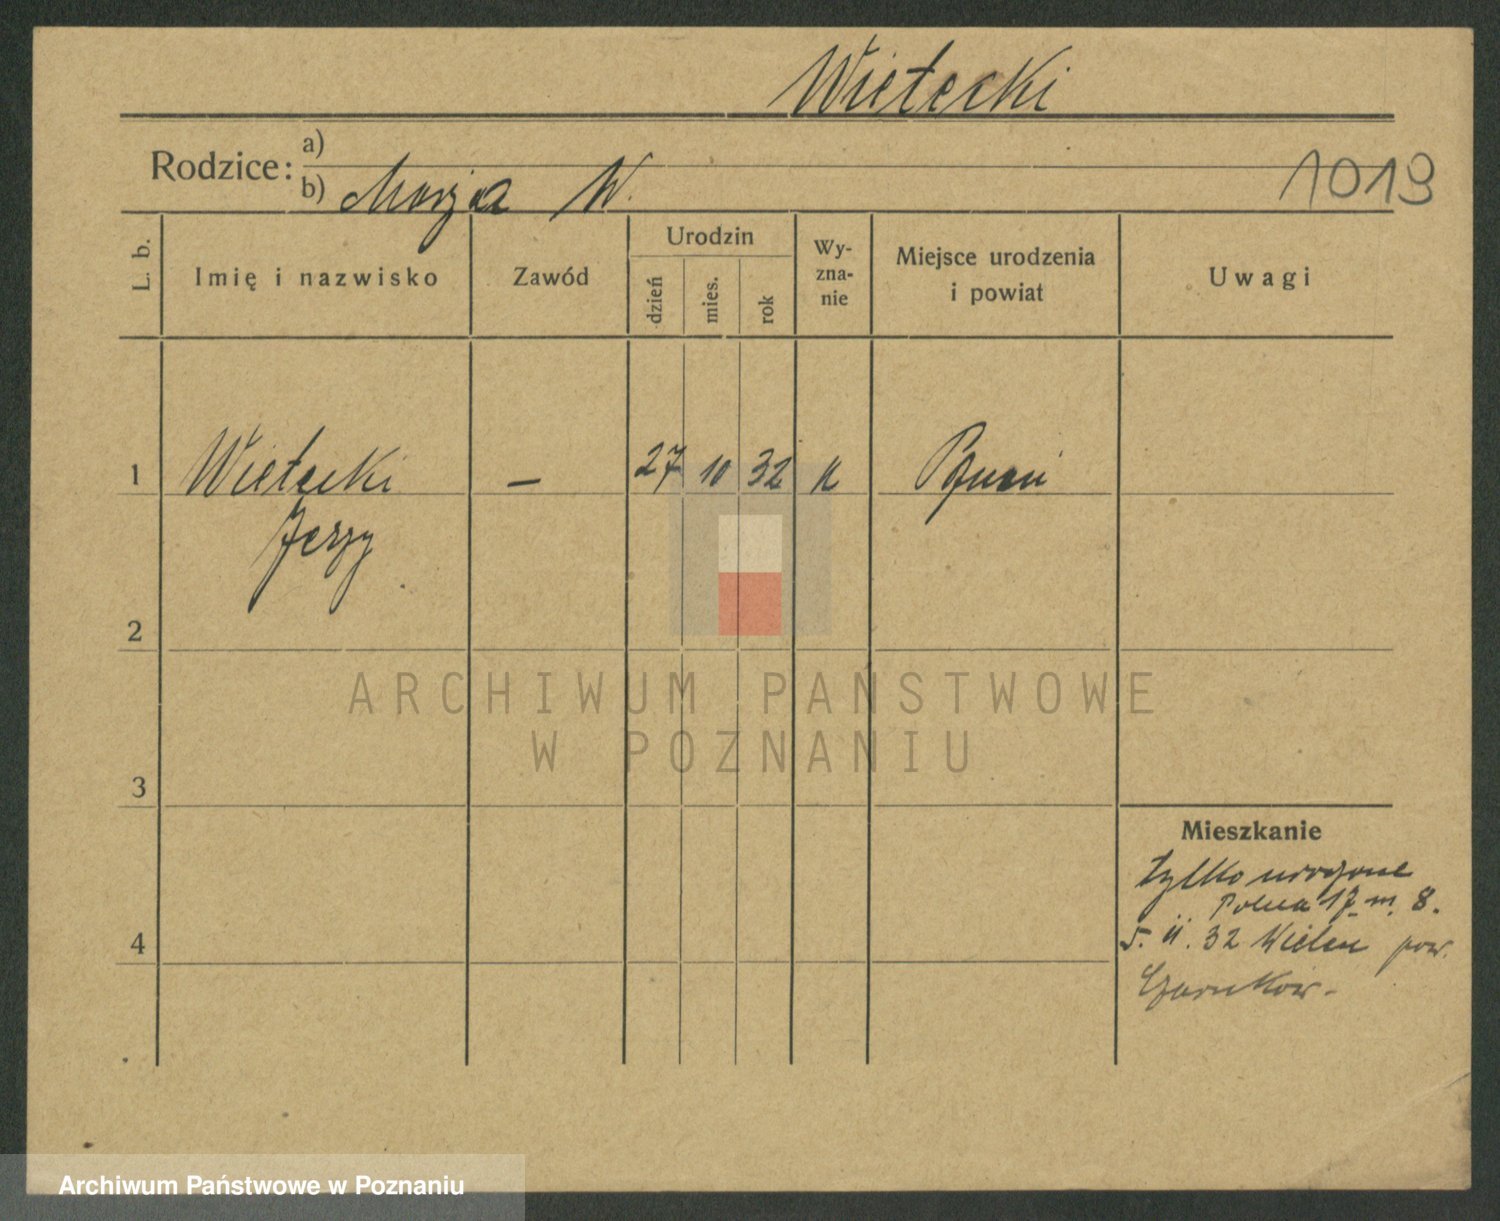 Wietecki
Rodzice: a)
b) Marja W.
1019
L. b.
Imię i nazwisko
Zawód
Urodzin
dzień
mies.
rok
Wy-
zna-
nie
Miejsce urodzenia
i powiat
Uwagi
1 Wietecki — 27 10 32 k
Jerzy
2
ARCHIWUM PAŃSTWOWE
W POZNANIU
3
Mieszkanie
tylko urodzone
Polna 17 m. 8.
4
5. 11. 32 Wieleń pow.
Czarnków -
Archiwum Państwowe w Poznaniu